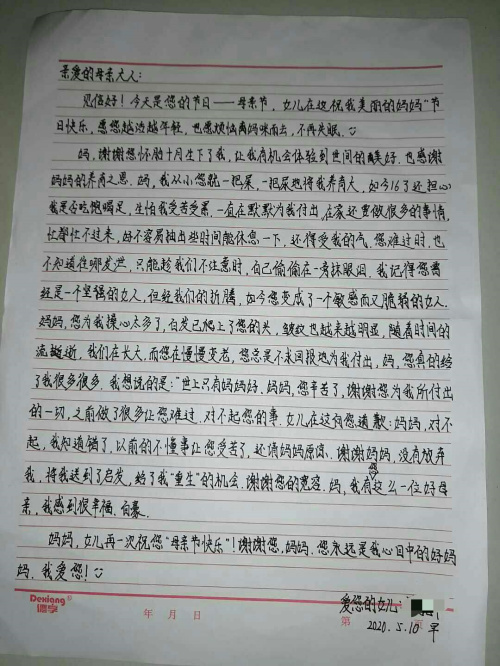 亲爱的母亲大人:
见信好!今天是您的节日——母亲节,女儿在这祝我美丽的妈妈"节
日快乐,愿您越活越年轻,也愿烦恼离妈咪而去,不再失眠.
妈,谢谢您怀胎十月生下了我,让我有机会体验到世间的美好.也感谢
妈妈的养育之恩.妈,我从小您就一把屎,一把尿地将我养育大,如今16了还担心
我是否吃饱喝足,生怕我受苦受累,一直在默默为我付出,在家还要做很多的事情,
忙都忙不过来,好不容易抽出些时间能休息一下,还得受我的气.您难过时,也
不知道在哪发泄,只能趁我们不注意时,自己偷偷在一旁抹眼泪.我记得您曾
经是一个坚强的女人,但经我们的折腾,如今您变成了一个敏感而又脆弱的女人.
妈妈,您为我操心太多了,白发已爬上了您的头,皱纹也越来越明显,随着时间的
流逝,我们在长大,而您在慢慢变老,您总是不求回报地为我付出,妈,您真的给
了我很多很多.我想说的是:"世上只有妈妈好.妈妈,您辛苦了,谢谢您为我所付出
的一切,之前做了很多让您难过,对不起您的事.女儿在这向您道歉:妈妈,对不
起,我知道错了,以前的不懂事让您受苦了,还请妈妈原谅.谢谢妈妈,没有放弃
我,将我送到了启发,给了我"重生"的机会.谢谢您的宽容.妈,我有您这么一位好母
亲,我感到很幸福.自豪.
妈妈,女儿再一次祝您"母亲节快乐"!谢谢您,妈妈.您永远是我心目中的好妈
妈.我爱您!
爱您的女儿:
2020.5.10
Dexiang®
德字
年 月 日
第 页